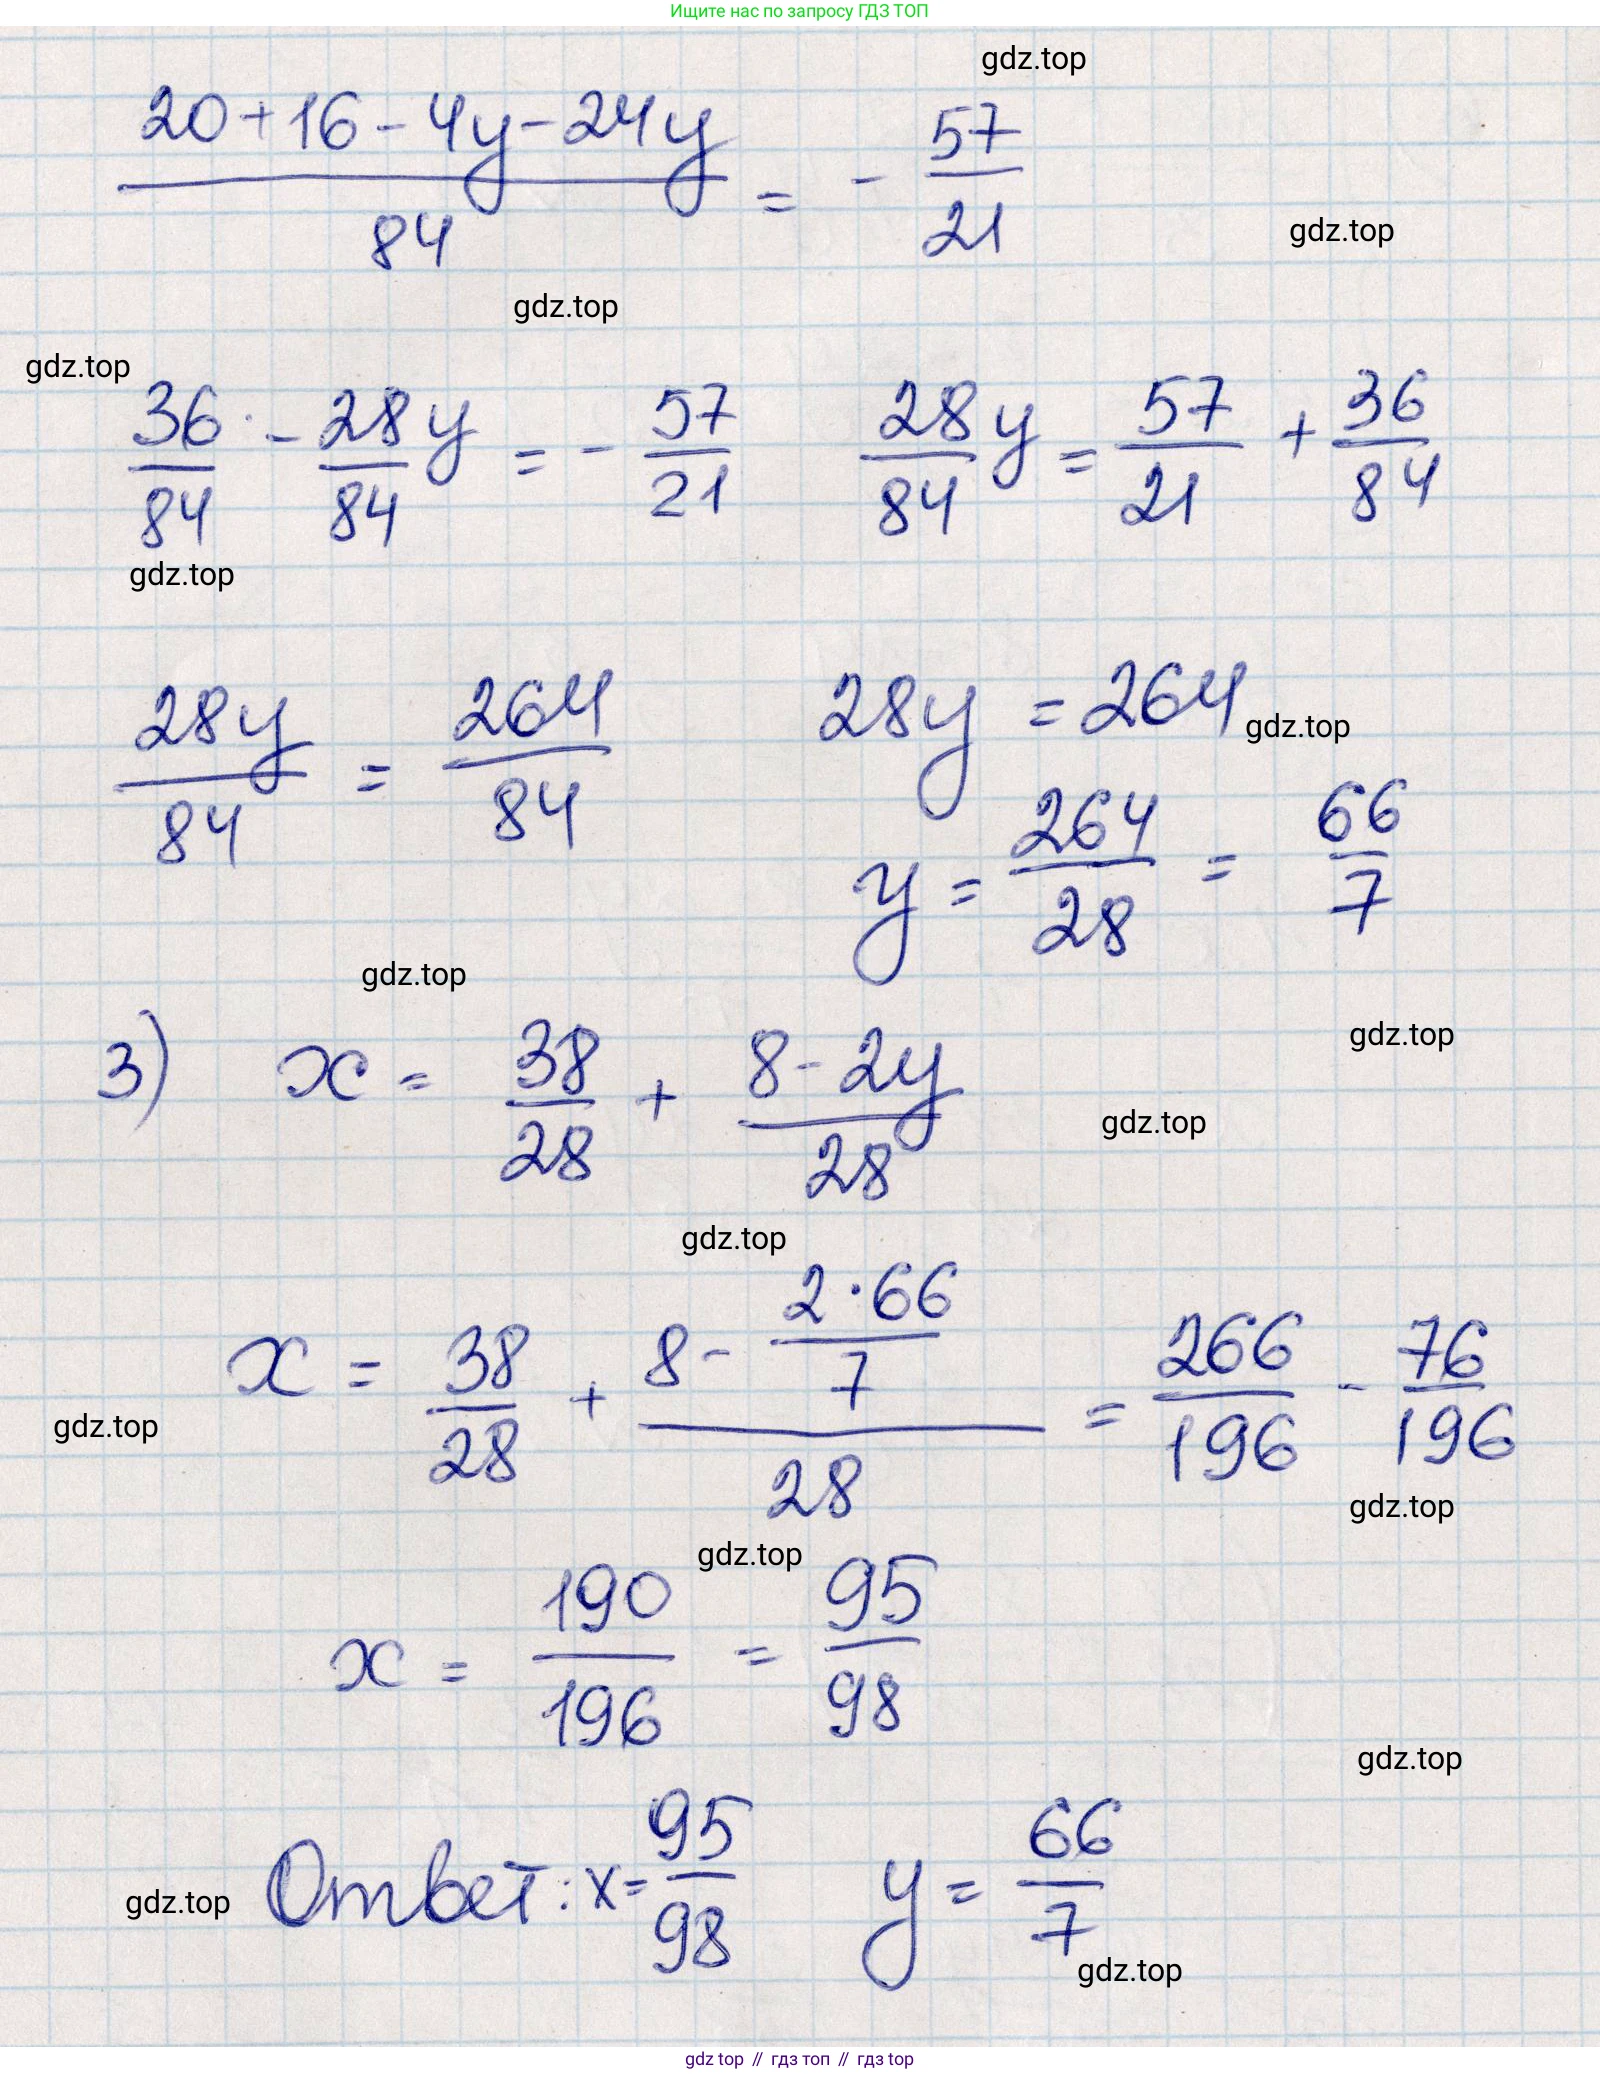 Ищите нас по запросу ГДЗ ТОП
gdz.top
20+16-4y-24y/84 = - 57/21
gdz.top
gdz.top
gdz.top
36/84 - 28/84 y = - 57/21   28/84 y = 57/21 + 36/84
gdz.top
28y/84 = 264/84   28y = 264
gdz.top
y = 264/28 = 66/7
gdz.top
gdz.top
3) x = 38/28 + 8-2y/28
gdz.top
gdz.top
x = 38/28 + (8 - 2·66/7)/28 = 266/196 - 76/196
gdz.top
gdz.top
gdz.top
x = 190/196 = 95/98
gdz.top
Ответ: x = 95/98   y = 66/7
gdz.top
gdz.top
gdz top // гдз топ // gdz top